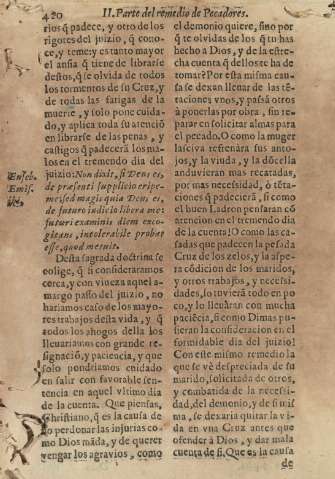 420
II. Parte del remedio de Pecadores.
rios q̃ padece, y otro de los
rigores del juizio, q̃ cono-
ce, y teme; y es tanto mayor
el ansia q̃ tiene de librarse
destos, q̃ se olvida de todos
los tormentos de su Cruz, y
de todas las fatigas de la
muerte, y solo pone cuida-
do, y aplica toda su atenciõ
en librarse de las penas, y
castigos q̃ padecerà los ma-
los en el tremendo dia del
juizio: Non dixit, si Deus es,
de præsenti supplicio eripe
me: sed magis quia Deus es,
de futuro iudicio libera me:
futuri examinis diem exco-
gitans, intolerabile probat
esse, quod metuit.
Euseb.
Emis.
Desta sagrada doctrina se
colige, q̃ si consideraramos
cerca, y con viveza aquel a-
margo passo del juizio, no
hariamos caso de los mayo-
res trabajos desta vida, y q̃
todos los ahogos della los
llevariamos con grande re-
signaciõ, y paciencia, y que
solo pondriamos cuidado
en salir con favorable sen-
tencia en aquel vltimo dia
de la cuenta. Que piensas,
Christiano, q̃ es la causa de
no perdonar las injurias co-
mo Dios mãda, y de querer
vengar los agravios, como
el demonio quiere, sino por
q̃ te olvidas de los q̃ tu has
hecho a Dios, y de la estre-
cha cuenta q̃ dellos te ha de
tomar? Por esta misma cau-
sa se dexan llevar de las tẽ-
taciones vnos, y passã otros
à ponerlas por obra, sin re-
parar en solicitar almas para
el pecado. O como la muger
lasciva refrenàra sus anto-
jos, y la viuda, y la dõcella
anduvieran mas recatadas,
por mas necessidad, ò tẽta-
ciones q̃ padecierã, si como
el buen Ladron pensaran cõ
atencion en el tremendo dia
de la cuenta! O como las ca-
sadas que padecen la pesada
Cruz de los zelos, y la aspe-
ra cõdicion de los maridos,
y otros trabajos, y necessi-
dades, lo tuvierã todo en po-
co, y lo llevàran con mucha
paciẽcia, si como Dimas pu-
sieran la consideracion en el
formidable dia del juizio!
Con este mismo remedio la
que se vè despreciada de su
marido, solicitada de otros,
y combatida de la necessi-
dad, del demonio, y de si mis-
ma, se dexaria quitar la vi-
da en vna Cruz antes que
ofender à Dios, y dar mala
cuenta de si. Que es la causa
de